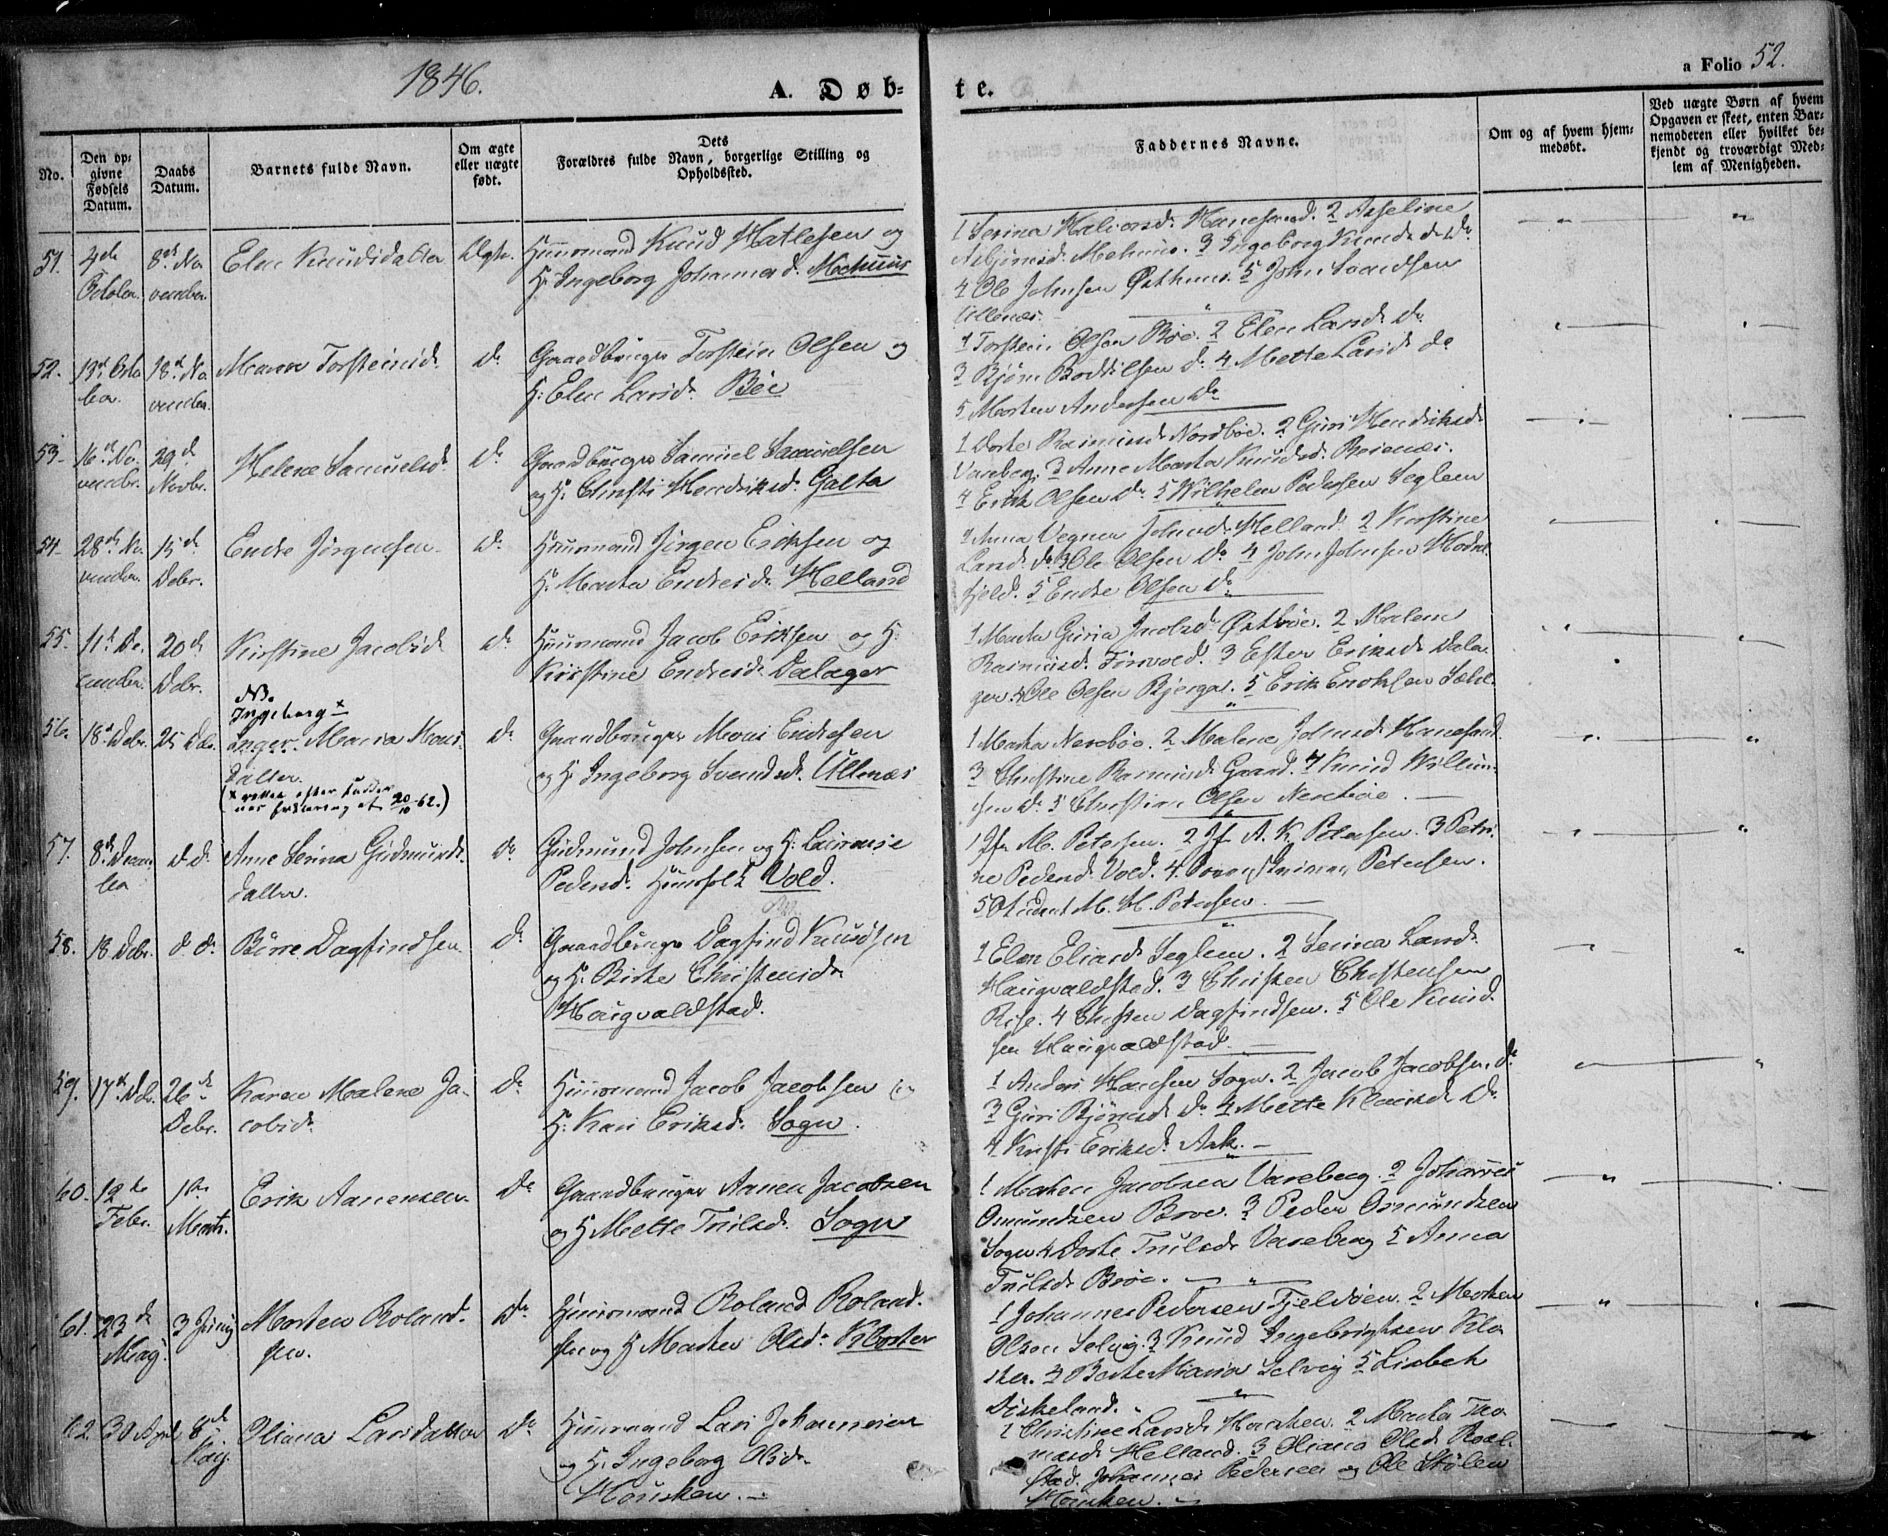 1846.
A. Døb=
te.
a Folio 52.
No.
Den op-
givne
Fødsels
Datum.
Daabs
Datum.
Barnets fulde Navn.
Om ægte
eller uægte
født.
Dets
Forældres fulde Navn, borgerlige Stilling og
Opholdssted.
Faddernes Navne.
Om og af hvem hjem-
medøbt.
Ved uægte Børn af hvem
Opgaven er skeet, enten Bar-
nemoderen eller hvilket be-
kjendt og troværdigt Med-
lem af Menigheden.
51.
4de
October
8de No
vember
Elen Knudsdatter
Ægte.
Huusmand Knud Hatlesen og
H: Ingeborg Johannesd.
4 Ole Johnsen Østhuus. 5 John
52.
19de Octo
ber.
18de No
vember.
Torsteinsd.
Do
Gaardbruger Torstein Olsen og
H: Elen Larsd. Bøe
1 Torstein Olsen Bøe. 2 Elen Larsd. Do
3 Bjørn Do 4 Mette Larsd. do
5 Morten Andersen Do
53.
16de No.
vembr.
29de
Novbr.
Helene Samuelsd.
Do
Gaardbruger Samuel Samuelsen
og H. Christi Hendriksd. Galta
1 Dorte Rasmusd. Nordbøe. 2 Guri Hendriksd.
Vareberg. 3 Anne Marta Knudsd.
4 Erik Olsen Do 5 Wilhelm Pedersen Seglem
54.
28de No
vember
15de
Debr.
Endre Jørgensen
Do
Huusmand Jørgen Eriksen og
H. Marta Endresd. Helland
1 Anna Johnsd. Helland. 2 Kirstine
Larsd. do 3 Ole Olsen Do 4 John Johnsen
fjeld. 5 Endre Olsen Do
55.
11te De
cember
20de
Debr.
Kirstine Jacobsd.
Do
Huusmand Jacob Eriksen og H:
Kirstine Endresd. Dalager
1 Marta Guria Jacobsd. Østbøe. 2 Malena
Rasmusd. 3 Ester Eriksd. Dala
ger. 4 Ole Olsen Bjerga. 5 Erik Enoksen
56.
18de Debr.
25 Debr.
NB.
Ingeborg ×
Inger. Maria Mons
datter.
Do
Gaardbruger Mons Endresen
og H. Ingeborg Svendsd. Ullenæs
1 Marta Nesebøe. 2 Malene Johnsd. Hanesand.
3 Christine Rasmusd. Gaard. 4 Knud William
sen Do 5 Christian Olsen Nesebøe.
57.
8de Decem
ber
d. d.
Anne Serina Gudmunds
datter.
Do
Gudmund Johnsen og H.
Pedersd. Huusfolk Vold.
1 M. Petersen. 2 A. K. Petersen. 3 Petri
ne Pedersd. Vold. 4. Petersen.
5 Student M. H. Petersen.
58.
18 Debr.
d. d.
Børre Dagfindsen
Do
Gaardbruger Dagfind Knudsen
og H. Birte Christensd.
Haugvaldstad.
1 Elen Eliasd. Seglem. 2 Serina Larsd.
Haugvaldstad. 3 Christen Christensen
4 Christen Dagfindsen. 5 Ole Knud
sen Haugvaldstad.
59.
17de Deb.
26de
Debr.
Karen Malene Ja-
cobsd.
Do
Huusmand Jacob Jacobsen og
H. Kari Eriksd. Sogn.
1 Anders Hansen Sogn. 2 Jacob Jacobsen do
3 Guri Bjørnsd. Do 4 Mette Do
4 Kristi Eriksd. Ask.
60.
12te
Febr.
1ste
Marts.
Erik Aanensen
Do
Gaardbruger Aanen Jacobsen
og H Mette Trulsd. Sogn
1 Jacobsen Vareberg. 2 Johannes
Omundsen 3 Peder Omundsen
Sogn. 4 Dorte Trulsd. Vareberg 5 Anna
Trulsd. Brøe.
61.
23de
May.
3 Juny
Morten Roland
sen.
Do
Huusmand Roland Roland
sen og H Olsd. Kloster
1 Johannes Pedersen Fjeldøen. 2 Morten
Olsen Selvig. 3 Knud Ingebrigtsen Klo
ster. 4 Berte Maria Selvig 5 Lisbeth
62.
30 April
8de
May.
Oliana Larsdatter
Do
Huusmand Lars Johannesen
og H. Ingeborg Olsd.
Housken.
1 Christine Larsd. Housken. 2 Marta Tho
masd. Helland. 3 Oliana Olsd.
Johannes Pedersen og Ole
Housken.